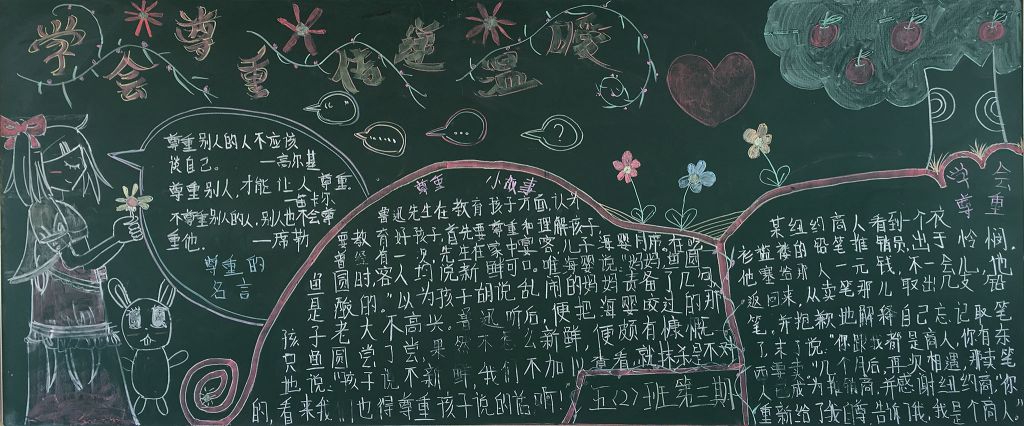 学会尊重 传递温暖
尊重别人的人不应该
谈自己。 —高尔基
尊重别人,才能让人尊重.
—笛卡尔
不尊重别人的人,别人也不会尊
重他. —席勒
尊重的
名言
尊重 小故事
鲁迅先生在教育孩子方面,认为
要教育好孩子,首先要尊重和理解孩子.
曾经有一说,先生在家中宴客,儿子海婴同席.在吃
鱼圆时,客人均说新鲜可口.唯海婴说:"妈妈,鱼圆
是酸的."以为孩子胡说乱闹的妈妈责备了几句,
孩子老大不高兴.鲁迅听后,便把海婴咬过的那
只鱼圆尝了尝,果然不怎么新鲜,便颇有慷慨
地说:"孩子说不新鲜,我们不加以查看,就抹杀是不对
的,看来我们也得尊重孩子说的话啊!
五(2)班第三期
学会
尊重
某纽约商人看到一个衣
衫褴褛的铅笔推销员,出于怜悯,
他塞给那人一元钱,不一会儿,他
返回来,从卖笔那儿取出几支铅
笔,并抱歉地解释自己忘记取笔
了,末了说:"你跟我都是商人,你有东
西要卖."几个月后,再次相遇,那卖笔
人已成为推销商,并感谢纽约商:"你
重新给了我自尊,告诉了我,我是个商人."